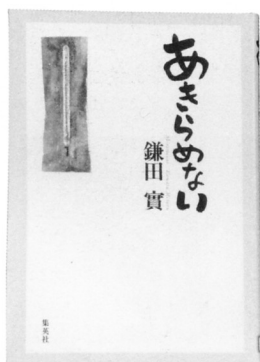 あきらめない
鎌田 實
集英社